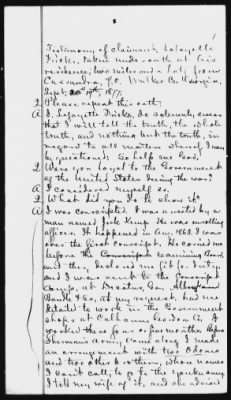 1
Testimony of claimant, Lafayette
taken under oath at his
residence, two miles and a half from
Cassandra, P.O. Walker Co. Georgia,
Sept. 19th, 1877.
Q Please repeat this oath:
A I, Lafayette do solemnly swear
that I will tell the truth, the whole
truth, and nothing but the truth, in
regard to all matters whereof I may
be questioned. So help me God.
Q Were you loyal to the Government
of the United States during the war?
A I considered myself so.
Q What did you do to show it?
A I was conscripted. I was arrested by a
man named Jack Kemp. He was enrolling
officer. It happened in Aug. 1862. I was
over the first conscript. He carried me
before the Conscript examining Board,
and they declared me fit for duty
and I was sent to the Conscript
Camp, at Decatur, Ga.
& Co, at my request, had me
detailed to work in the Government
shops at Calhoun, Gordon Co. I
worked there four or five months before
Sherman's Army came along. I made
an arrangement with two
and two other brothers, whose names
I can't call, to go to the Yankee army
I told my wife of it, and she advised